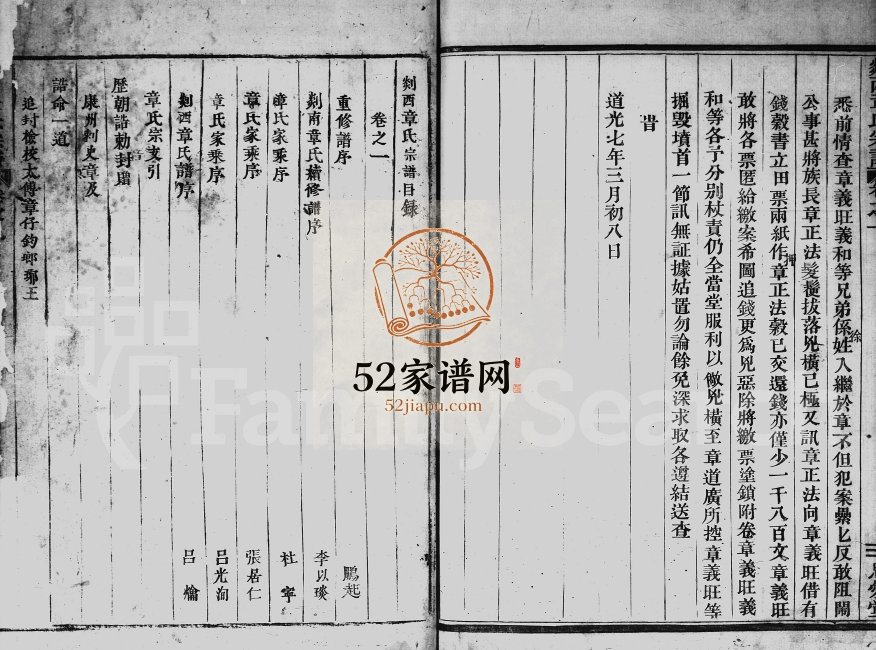 悉前情查章義旺義和等兄弟係姓入繼於章不但犯案纍乜反敢阻鬧
徐
公事甚將族長章正法髮髢拔落兇橫已極又訊章正法向章義旺借有
錢穀書立田票兩紙作章正法穀已交還錢亦僅少一千八百文章義旺
押
敢將各票匿給繳案希圖追錢更為兇惡除將繳票塗銷附卷章義旺義
和等各予分別杖責仍全當堂服利以儆兇橫至章道廣所控章義旺等
掘毀墳首一節訊無証據姑置勿論餘免深求取各遵結送查
道光七年三月初八日
剡西章氏宗譜目錄
卷之一
重修譜序 鵬起
剡南章氏續修譜序 李以琰
章氏家乘序 杜寧
章氏家乘序 張居仁
章氏家乘序 呂光洵
剡西章氏譜序 呂爚
章氏宗支引
歷朝誥勅封贈
康州刺史章及
誥命一道
追封檢校太傅章仔鈞瑯琊王
52家谱网
52jiapu.com
FamilySea